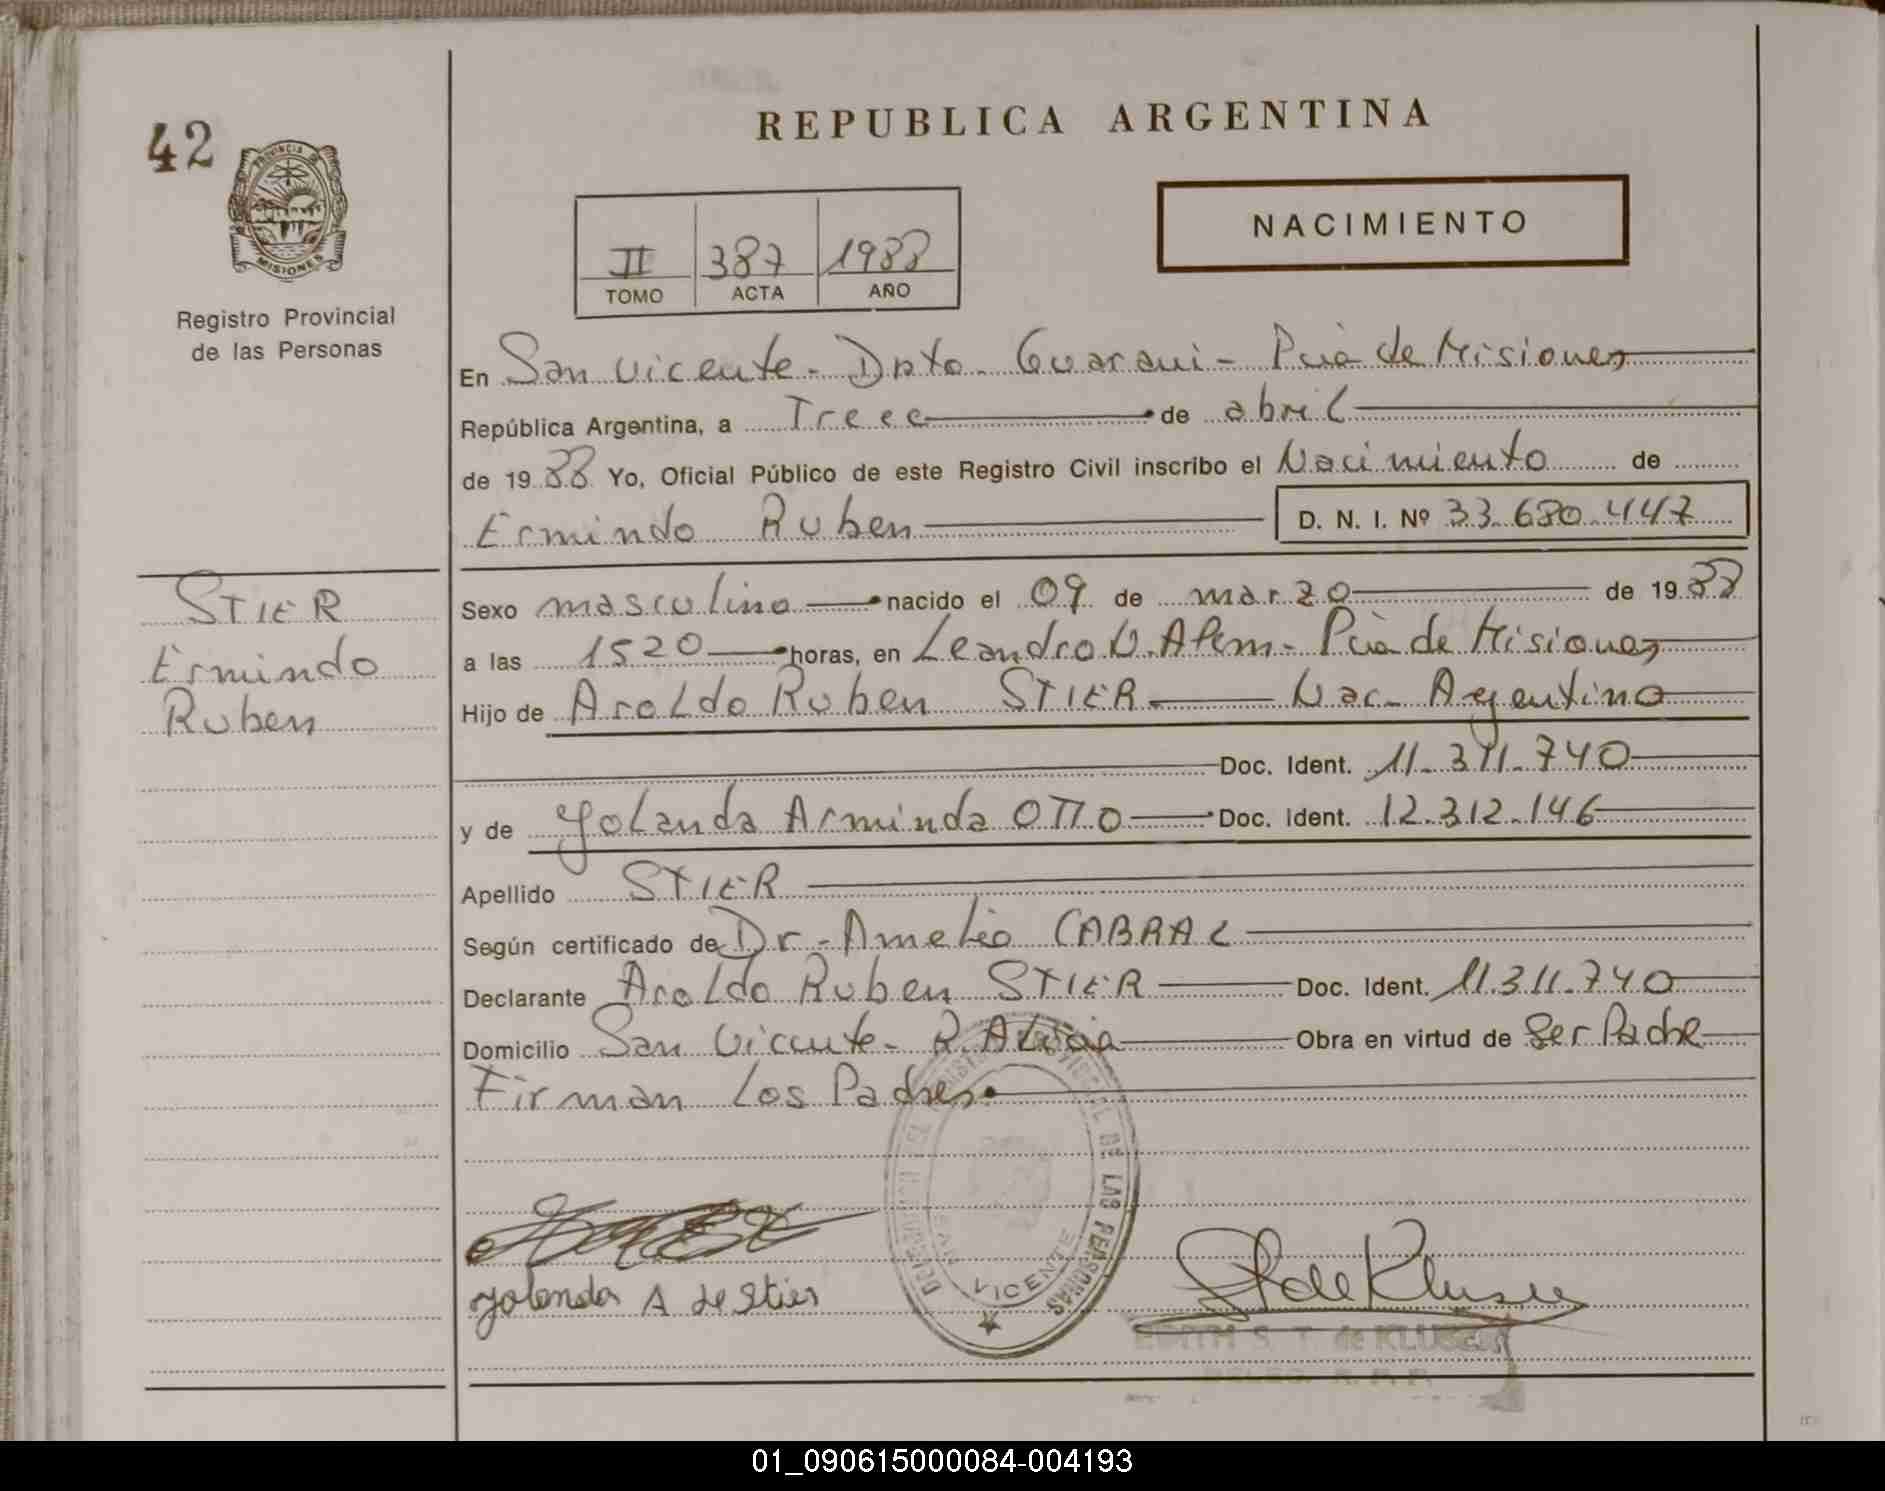 42
PROVINCIA DE
MISIONES
Registro Provincial
de las Personas
REPUBLICA ARGENTINA
II 387 1988
TOMO ACTA AÑO
NACIMIENTO
En San Vicente - Dpto. Guarani - Pcia de Misiones
República Argentina, a Trece de abril
de 19 88 Yo, Oficial Público de este Registro Civil inscribo el Nacimiento de
Ermindo Ruben D. N. I. Nº 33.680.447
STIER
Ermindo
Ruben
Sexo masculino nacido el 09 de marzo de 19 88
a las 1520 horas, en Leandro N. Alem - Pcia de Misiones
Hijo de Aroldo Ruben STIER Nac. Argentino
Doc. Ident. 11.311.740
y de Yolanda Arminda OTTO Doc. Ident. 12.312.146
Apellido STIER
Según certificado de Dr. Amelio CABRAL
Declarante Aroldo Ruben STIER Doc. Ident. 11.311.740
Domicilio San Vicente - Obra en virtud de Ser Padre
Firman Los Padres.
DE LAS PERSONAS
SAN VICENTE
Yolanda A de Stier
EDITH S. T. de
DELEG. R. P. P.
01_090615000084-004193